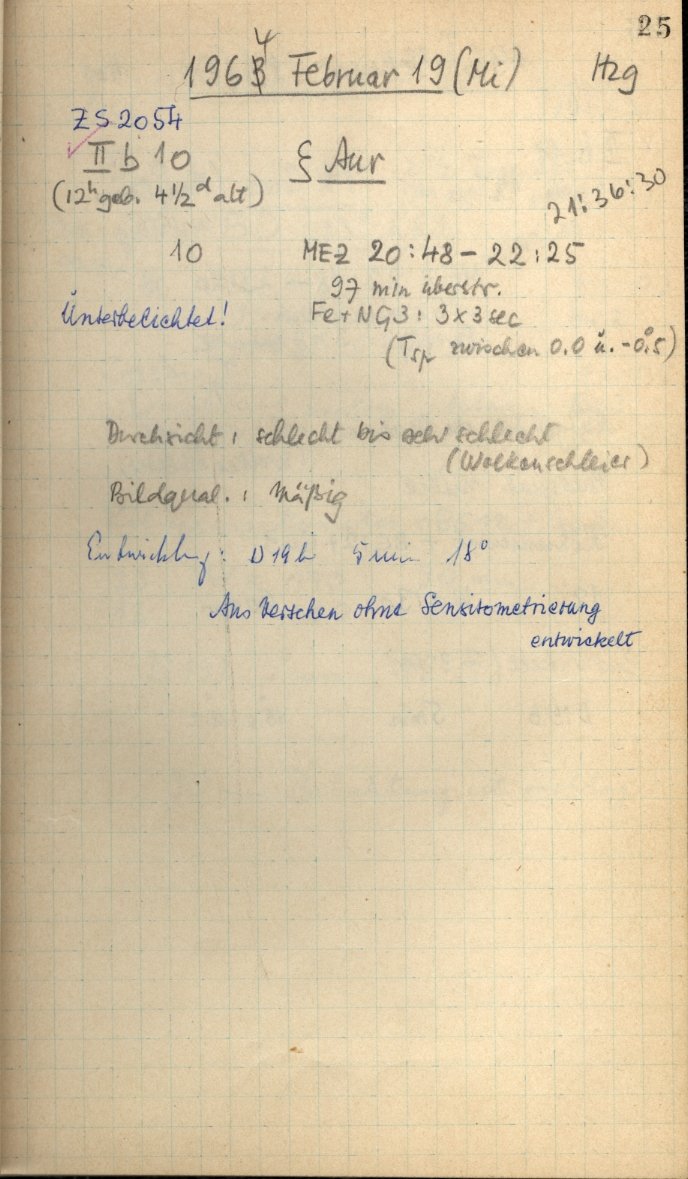 25
1964 Februar 19 (Mi) Hzg
ZS 2054
II b 10 ξ Aur
(12h geb. 4 1/2 d alt)
21:36:30
10 MEZ 20:48 - 22:25
97 min überstr.
Unterbelichtet! Fe + NG3: 3 x 3 sec
(Tsp zwischen 0.0 u. -0.5)
Durchsicht: schlecht bis sehr schlecht
(Wolkenschleier)
Bildqual.: Mäßig
Entwicklg: D19b 5 min 18°
Aus Versehen ohne Sensitometrierung
entwickelt